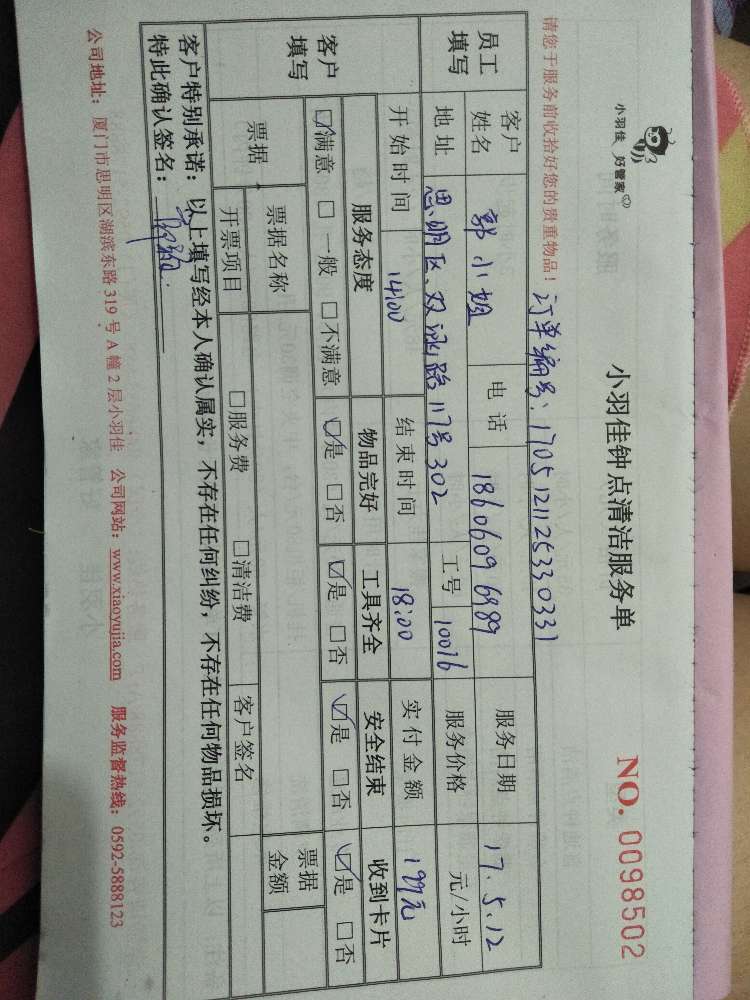 小羽佳 好管家
小羽佳钟点清洁服务单
NO. 0098502
请您于服务前收拾好您的贵重物品！
订单编号：1705121125330331
员工填写
客户姓名 郭小姐 电话 18606096989 服务日期 17.5.12
地址 思明区 117号302 工号 10016 服务价格 元/小时
开始时间 14:00 结束时间 18:00 实付金额 199元
客户填写
服务态度 物品完好 工具齐全 安全结束 收到卡片
☑满意 □一般 □不满意 ☑是 □否 ☑是 □否 ☑是 □否 ☑是 □否
票据 票据名称 票据金额
开票项目 □服务费 □清洁费 客户签名
客户特别承诺：以上填写经本人确认属实，不存在任何纠纷，不存在任何物品损坏。
特此确认签名：
公司地址：厦门市思明区湖滨东路319号A幢2层小羽佳 公司网站：www.xiaoyujia.com 服务监督热线：0592-5888123